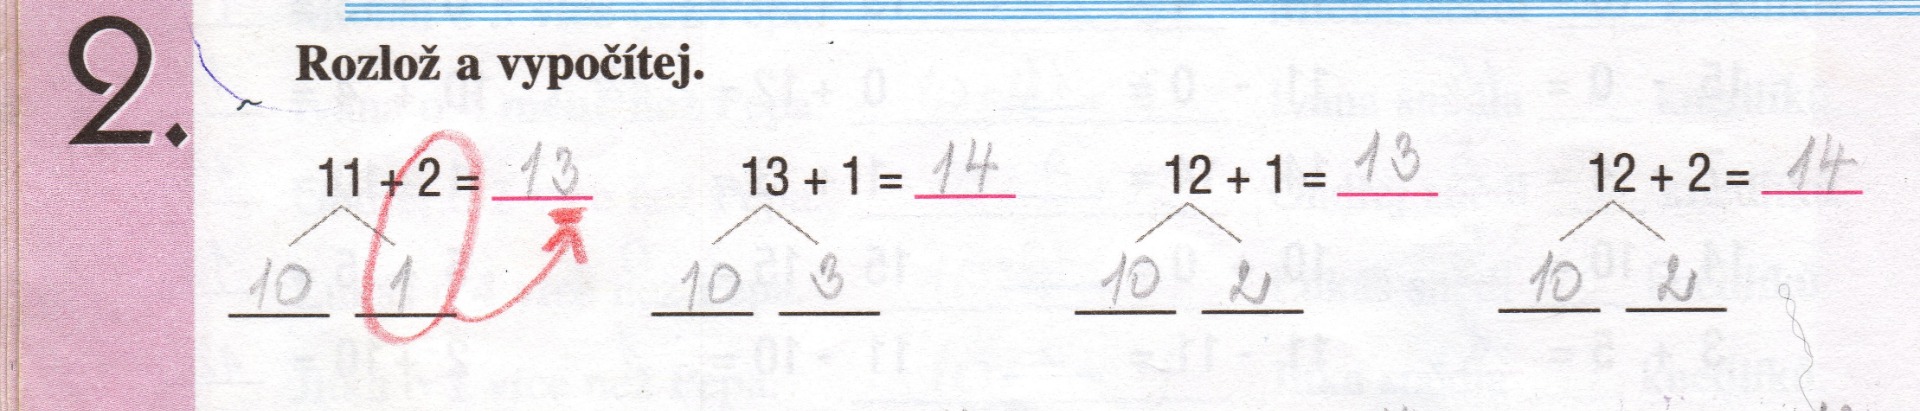 2. Rozlož a vypočítej.
11 + 2 = 13 13 + 1 = 14 12 + 1 = 13 12 + 2 = 14
10 1 10 3 10 2 10 2